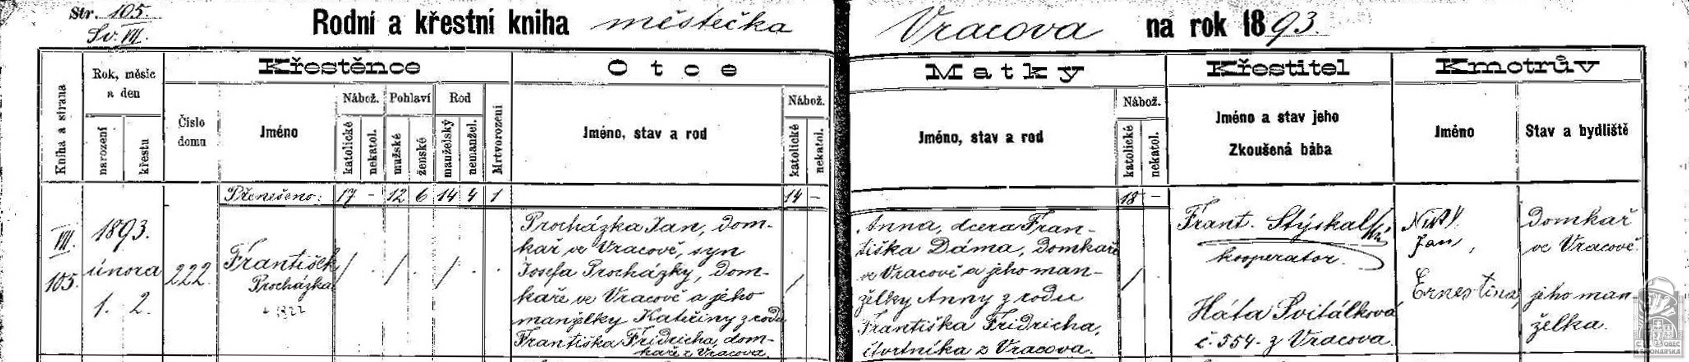 Str. 105.
Sv. VII.
Rodní a křestní kniha městečka Vracova na rok 1893.
Kniha a strana
Rok, měsíc a den
narození
křestu
Číslo domu
Křestěnce
Jméno
Nábož.
katolické
nekatol.
Pohlaví
mužské
ženské
Rod
manželský
nemanžel.
Mrtvorození
Otce
Jméno, stav a rod
Nábož.
katolické
nekatol.
Matky
Jméno, stav a rod
Nábož.
katolické
nekatol.
Křestitel
Jméno a stav jeho
Zkoušená bába
Kmotrův
Jméno
Stav a bydliště
Přenešeno: 17 - 12 6 14 4 1 14 - 18 -
VII.
105.
1893.
února
1. 2.
222.
František
Procházka
/ . / . / .
Procházka Jan, dom-
kař ve Vracově, syn
Josefa Procházky, dom-
kaře ve Vracově a jeho
manželky Kateřiny z rodu
Františka Fridricha, dom-
kaře z Vracova.
/ .
Anna, dcera Fran-
tiška Dáma, domkaře
ve Vracově a jeho man-
želky Anny z rodu
Františka Fridricha,
čtvrtníka z Vracova.
/ .
Frant. Stýskal
kooperator.
Háta Svitálková
č. 354. z Vracova.
Jan,
Ernestina,
Domkař
ve Vracově
jeho man-
želka.